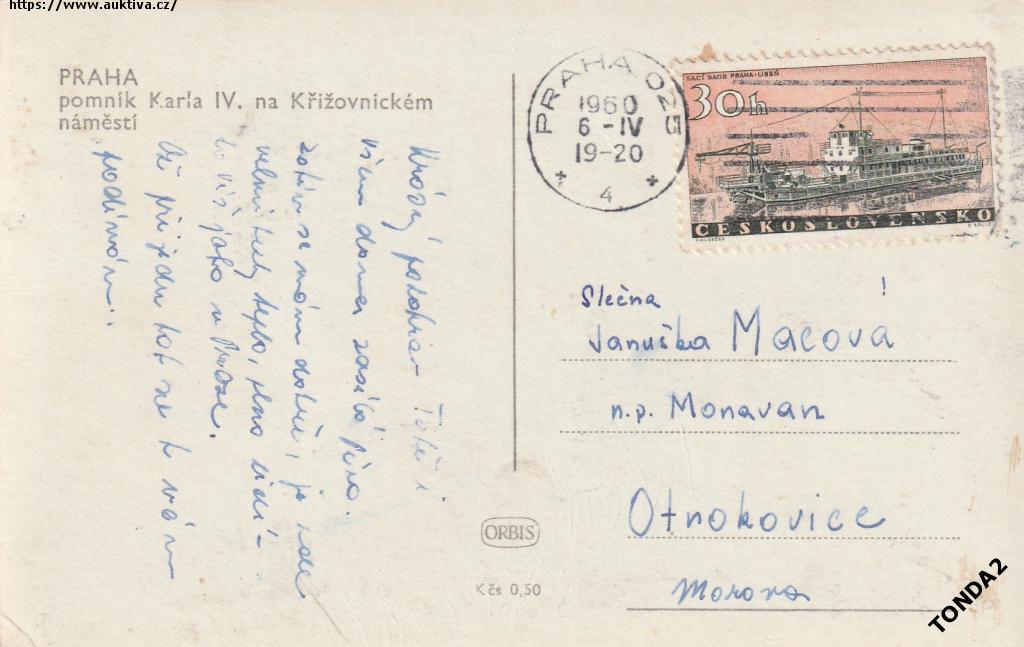 https://www.auktiva.cz/
PRAHA
pomník Karla IV. na Křižovnickém
náměstí
PRAHA 025
1960
6 -IV
19-20
4
SACÍ BAGR PRAHA-LIBEŇ
30h
ČESKOSLOVENSKO
Slečna
Januška Macová
n.p. Monavan
Otrokovice
Morava
ORBIS
Kčs 0,50
TONDA2
Všem doma zasílá
zatím se mám dobře, je zde
velmi teplo,
to víš jako v Praze.
Až přijedu tak se k vám
podívám.